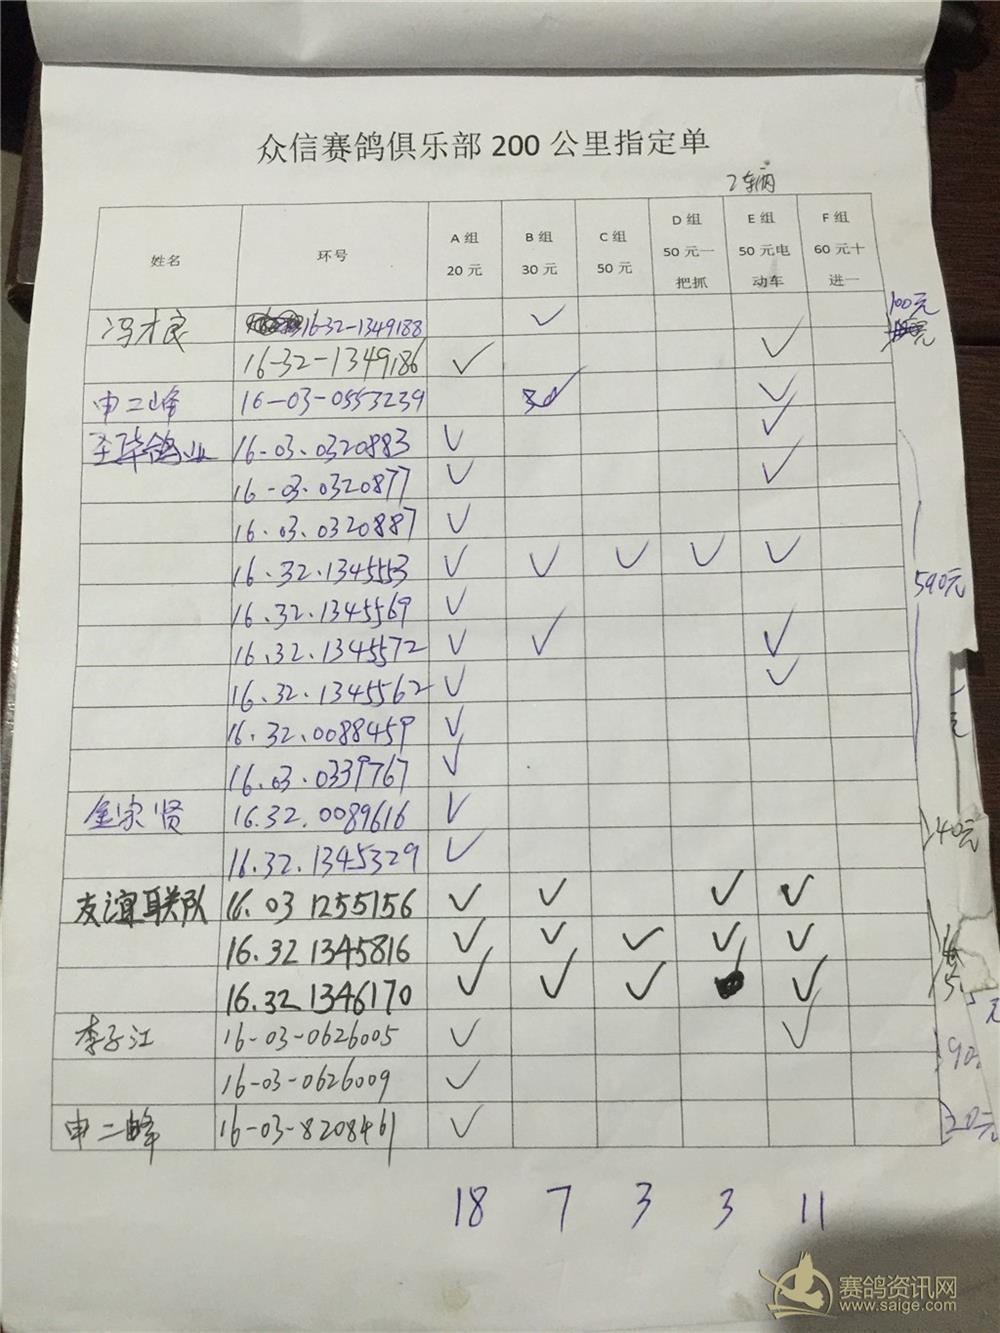 众信赛鸽俱乐部 200 公里指定单
2车辆
姓名 环号 A 组 20 元 B 组 30 元 C 组 50 元 D 组 50 元一把抓 E 组 50 元电动车 F 组 60 元十进一
冯才良 16-32-1349188 ✓ 100元
16-32-1349186 ✓ ✓ 元
申二峰 16-03-0553239 30 ✓ ✓
王华鸽业 16-03.0320883 ✓ ✓
16-03.0320877 ✓ ✓
16.03.0320887 ✓
16.32.1345553 ✓ ✓ ✓ ✓ ✓
590元
16.32.1345569 ✓
16.32.1345572 ✓ ✓ ✓
16.32.1345562 ✓ ✓
16.32.0088459 ✓
16.03.0339767 ✓
金宗贤 16.32.0089616 ✓ 40元
16.32.1345329 ✓
友谊联队 16.03 1255156 ✓ ✓ ✓ ✓
16.32 1345816 ✓ ✓ ✓ ✓ ✓
16.32 1346170 ✓ ✓ ✓ ✓ 5
元
李子江 16-03-0626005 ✓ ✓ 90
16-03-0626009 ✓
申二峰 16-03-8208461 ✓ 20元
18 7 3 3 11
赛鸽资讯网
www.saige.com